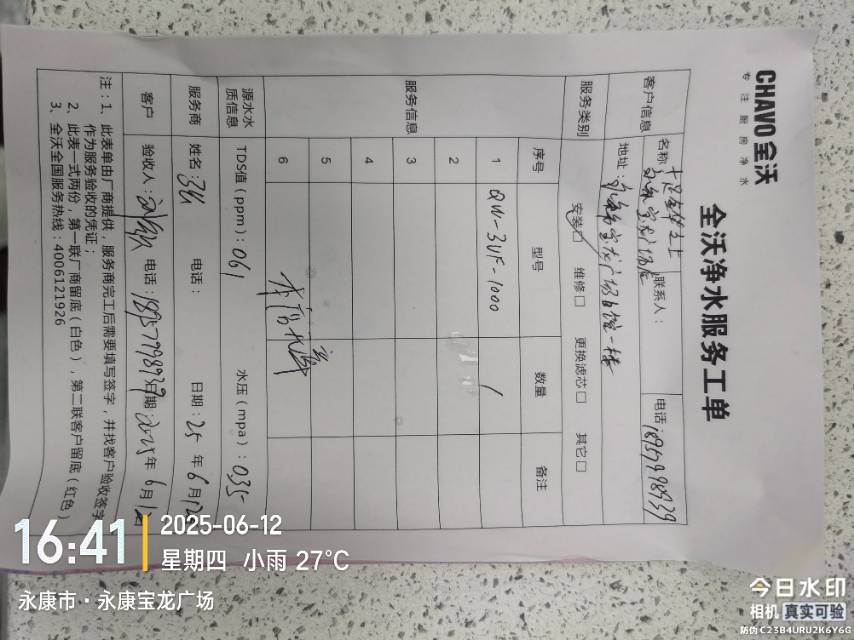 CHAVO 全沃
专注厨房净水
全沃净水服务工单
客户信息
名称
联系人：
电话：18957998939
地址：
服务类别
安装☑ 维修□ 更换滤芯□ 其它□
服务信息
序号 型号 数量 备注
1 QW-3UF-1000 1
2
3
4
5
6
源水水质信息
TDS值（ppm）：061
水压（mpa）：035
服务商
姓名：
电话：
日期：25年6月12
客户
验收人：
电话：18957998939
日期：2025年6月12
注：1、此表单由厂商提供，服务商完工后需要填写签字，并找客户验收签字
作为服务验收的凭证；
2、此表一式两份，第一联厂商留底（白色），第二联客户留底（红色）
3、全沃全国服务热线：4006121926
16:41
2025-06-12
星期四 小雨 27°C
永康市·永康宝龙广场
今日水印
相机 真实可验
防伪 C23B4URU2K6Y6G